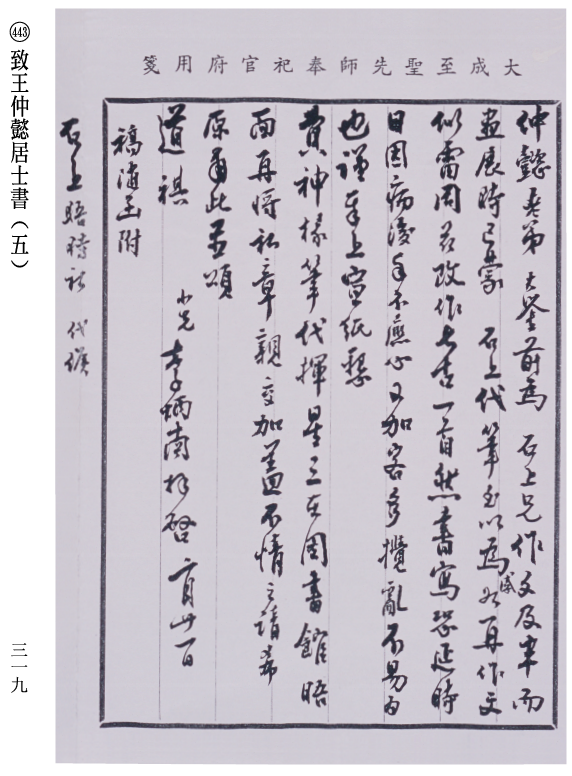 ㊹㊸ 致王仲懿居士書（五）
三一九
大成至聖先師奉祀官府用箋
仲懿老弟 大鑒前為 石上兄作文及畢而
畫展時已蒙 石上代筆至以為感若再作文
似雷同茲改作七古一首然書寫恐延時
日因病後手不應心又加客多攪亂不易為
也謹奉上宣紙懇
費神椽筆代揮星三在圖書館晤
面再將私章親交加蓋不情之請希
原肅此並頌
道祺
小兄 李炳南拜啓
稿隨函附
石上晤時祈 代候